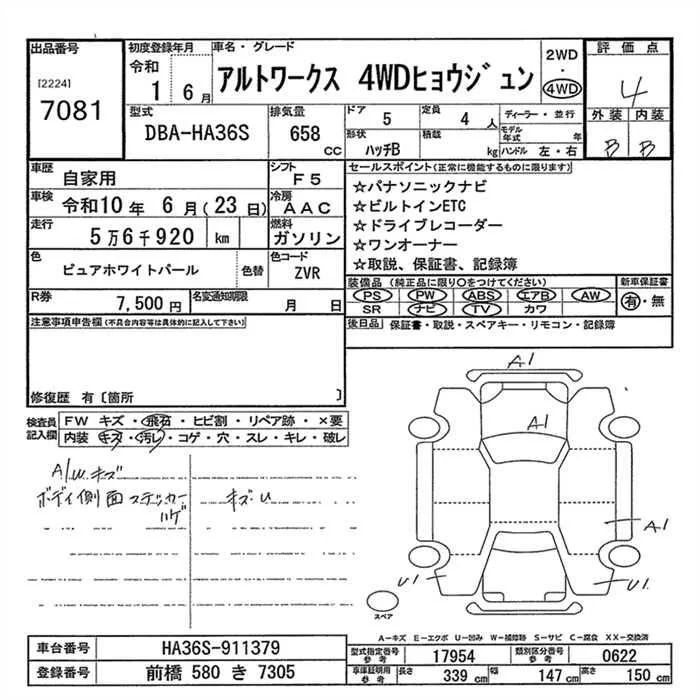 出品番号
[2224]
7081
初度登録年月
令和
1 6月
車名・グレード
アルトワークス 4WDヒョウジュン
2WD
・
4WD
評価点
4
外装 内装
B B
型式
DBA-HA36S
排気量
658 CC
ドア
5
定員
4人
形状
ハッチB
積載
kg
ディーラー・並行
モデル年式 年
ハンドル 左・右
車歴
自家用
シフト
F5
車検
令和10年 6月(23日)
冷房
AAC
走行
5万6千920 km
燃料
ガソリン
色
ピュアホワイトパール
色替
色コード
ZVR
R券
7,500円
名変通知期限
月 日
セールスポイント(正常に機能するものに限ります)
☆パナソニックナビ
☆ビルトインETC
☆ドライブレコーダー
☆ワンオーナー
☆取説、保証書、記録簿
装備品(純正品に限り○をつけてください)
PS PW ABS エアB AW
SR ナビ TV カワ
新車保証書
有・無
後日品 保証書・取説・スペアキー・リモコン・記録簿
注意事項申告欄(不具合内容等は具体的に記入して下さい)
修復歴 有〔箇所 〕
検査員記入欄
FW キズ・飛石・ヒビ割・リペア跡・×要
内装 キズ・汚レ・コゲ・穴・スレ・キレ・破レ
A/W キズ
ボディ側面 ステッカー
ハゲ
キズ・U
A1
A1
A1
U1
U1
スペア
A−キズ E−エクボ U−凹み W−補修跡 S−サビ C−腐食 XX−交換済
車台番号
HA36S-911379
登録番号
前橋 580 き 7305
型式指定番号
参考
17954
類別区分番号
参考
0622
車庫証明用
参考
長さ 339 cm
幅 147 cm
高さ 150 cm